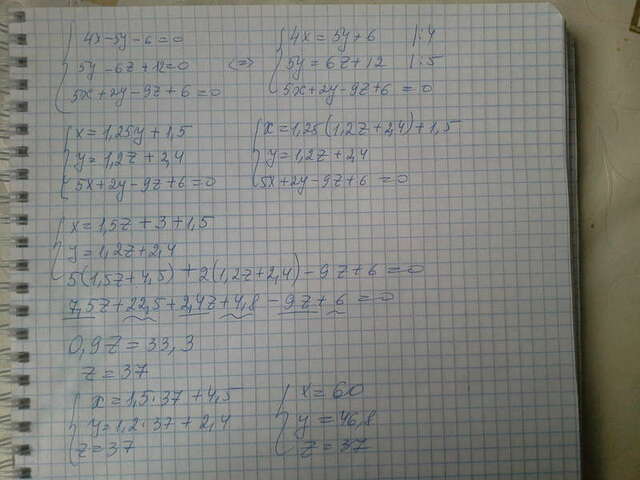 4x-5y-6=0
5y-6z+12=0 <=>
5x+2y-9z+6=0
4x=5y+6 |:4
5y=6z+12 |:5
5x+2y-9z+6=0
x=1,25y+1,5
y=1,2z+2,4
5x+2y-9z+6=0
x=1,25(1,2z+2,4)+1,5
y=1,2z+2,4
5x+2y-9z+6=0
x=1,5z+3+1,5
y=1,2z+2,4
5(1,5z+4,5)+2(1,2z+2,4)-9z+6=0
7,5z+22,5+2,4z+4,8-9z+6=0
0,9z=33,3
z=37
x=1,5·37+4,5
y=1,2·37+2,4
z=37
x=60
y=46,8
z=37